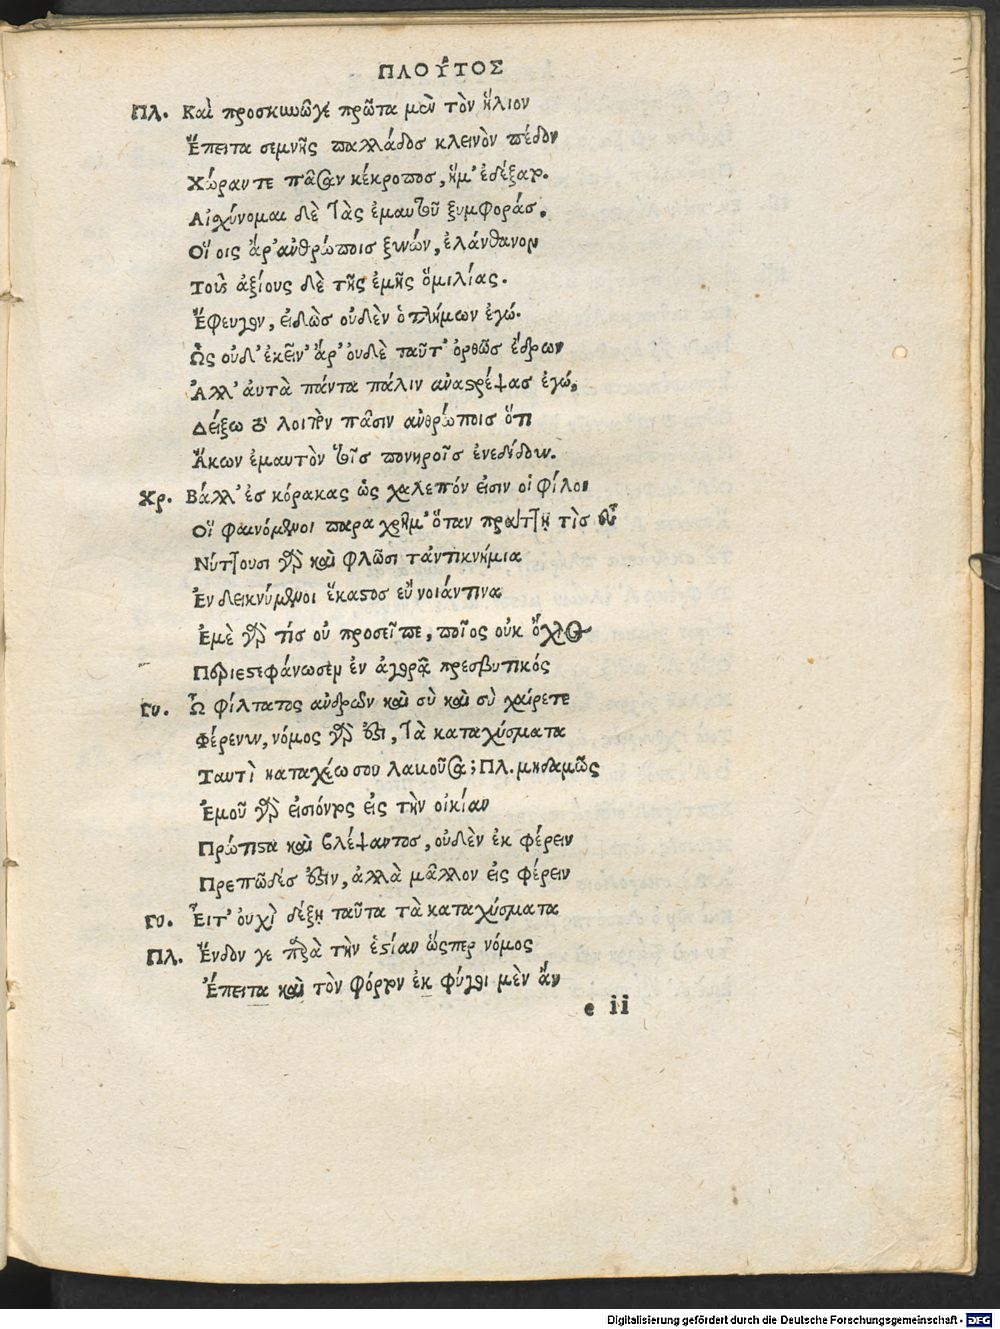 ΠΛΟΥ͂ΤΟΣ
Πλ. Καὶ προσκυνῶγε πρῶτα μὲν τὸν ἥλιον
Ἔπειτα σεμνῆς παλλάδος κλεινὸν πέδον
Χώραν τε πᾶσαν κέκροπος, ἥμ' ἐδέξατο.
Αἰσχύνομαι δὲ τὰς ἐμαυτοῦ ξυμφοράς.
Οἵ οις ἄρ' ἀνθρώποισ ξυνών, ἐλάνθανον
Τοὺς ἀξίους δὲ τῆς ἐμῆς ὁμιλίας.
Ἔφευγον, εἰδὼσ οὐδὲν ὁ τλήμων ἐγώ.
Ὡς οὐδ' ἐκεῖν' ἄρ' ὀυδὲ ταῦτ' ὀρθῶσ ἔδρων
Ἀλλ' ἀυτὰ πάντα πάλιν ἀναστρέψασ ἐγώ,
Δείξω τὸ λοιπὸν πᾶσιν ἀνθρώποισ ὅτι
Ἄκων ἐμαυτὸν τοῖσ πονηροῖσ ἐνεδίδουν.
Χρ. Βάλλ' ἐσ κόρακας ὡς χαλεπόν εἰσιν οἱ φίλοι
Οἵ φαινόμενοι παρα χρῆμ' ὅταν πράττῃ τὶσ εὖ
Νύττουσι γὰρ καὶ φλῶσι τἀντικνήμια
Ἐν δεικνύμενοι ἕκαστοσ εὔνοιάντινα
Ἐμὲ γὰρ τίσ οὐ προσεῖπε, ποῖος οὐκ ὄχλος
Περιεστεφάνωσεμ ἐν ἀγορᾷ πρεσβυτικός
Γυ. Ὦ φίλτατος ἀνδρῶν καὶ σὺ καὶ σὺ χαίρετε
Φέρενυν, νόμος γάρ ἐστι, τὰ καταχύσματα
Ταυτὶ καταχέω σου λαμοῦσα; Πλ. μηδαμῶς
Ἐμοῦ γὰρ ἐισιόντος εἰς τὴν οἰκίαν
Πρώτιστα καὶ βλέψαντος, οὐδὲν ἐκ φέρειν
Πρεπῶδές ἐστιν, ἀλλὰ μᾶλλον εἰς φέρειν
Γυ. Εἶτ' ὀυχὶ δέξῃ ταῦτα τὰ καταχύσματα
Πλ. Ἔνδον γε παρὰ τὴν ἑστίαν ὥςπερ νόμος
Ἔπειτα καὶ τὸν φόρτον ἐκ φύγοι μὲν ἄν
e ii
Digitalisierung gefördert durch die Deutsche Forschungsgemeinschaft - DFG